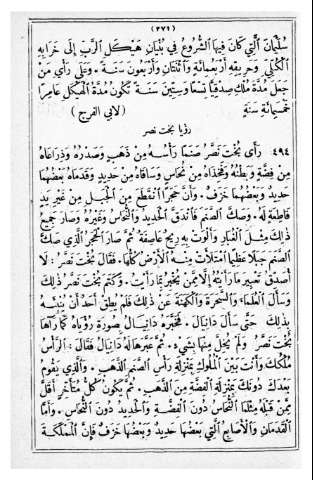 (٣٧١)
سُلَيْمَانَ الَّتِي كَانَ فِيهَا الشُّرُوعُ فِي بُنْيَانِ هَيْكَلِ الرَّبِّ إِلَى خَرَابِهِ
الْكُلِّيِّ وَحَرِيقِهِ أَرْبَعُمِائَةٍ وَٱثْنَتَانِ وَأَرْبَعُونَ سَنَةً. وَعَلَى رَأْيِ مَنْ
جَعَلَ مُدَّةَ مُلْكِ صِدْقِيَّا تِسْعًا وَسِتِّينَ سَنَةً تَكُونُ مُدَّةُ الْهَيْكَلِ عَامِرًا
خَمْسَمِائَةِ سَنَةٍ (لابي الفرج)
رؤيا بخت نصر
٤٩٤ رَأَى بُخْتَ نَصَّرُ صَنَمًا رَأْسُهُ مِنْ ذَهَبٍ وَصَدْرُهُ وَذِرَاعَاهُ
مِنْ فِضَّةٍ وَبَطْنُهُ وَفَخِذَاهُ مِنْ نُحَاسٍ وَسَاقَاهُ مِنْ حَدِيدٍ وَقَدَمَاهُ بَعْضُهُمَا
حَدِيدٌ وَبَعْضُهُمَا خَزَفٌ. وَأَنَّ حَجَرًا ٱنْقَطَعَ مِنَ الْجَبَلِ مِنْ غَيْرِ يَدٍ
قَاطِعَةٍ لَهُ. وَصَكَّ الصَّنَمَ فَٱنْدَقَّ الْحَدِيدُ وَالنُّحَاسُ وَغَيْرُهُ وَصَارَ جَمِيعُ
ذٰلِكَ مِثْلَ الْغُبَارِ وَأَلْوَتْ بِهِ رِيحٌ عَاصِفَةٌ ثُمَّ صَارَ الْحَجَرُ الَّذِي صَكَّ
الصَّنَمَ جَبَلًا عَظِيمًا ٱمْتَلَأَتْ مِنْهُ الْأَرْضُ كُلُّهَا. فَقَالَ بُخْتَ نَصَّرُ: لَا
أُصَدِّقُ تَعْبِيرَ مَا رَأَيْتُهُ إِلَّا مِمَّنْ يُخْبِرُ بِمَا رَأَيْتُ. وَكَتَمَ بُخْتَ نَصَّرُ ذٰلِكَ
وَسَأَلَ الْعُلَمَاءَ وَالسَّحَرَةَ وَالْكَهَنَةَ عَنْ ذٰلِكَ فَلَمْ يُطِقْ أَحَدٌ أَنْ يُنْبِئَهُ
بِذٰلِكَ حَتَّى سَأَلَ دَانِيَالَ. فَخَبَّرَهُ دَانِيَالُ بِصُورَةِ رُؤْيَاهُ كَمَا رَآهَا
بُخْتَ نَصَّرُ وَلَمْ يُخِلَّ مِنْهَا بِشَيْءٍ. ثُمَّ عَبَّرَهَا لَهُ دَانِيَالُ فَقَالَ: الرَّأْسُ
مُلْكُكَ وَأَنْتَ بَيْنَ الْمُلُوكِ بِمَنْزِلَةِ رَأْسِ الصَّنَمِ الذَّهَبِ. وَالَّذِي يَقُومُ
بَعْدَكَ دُونَكَ بِمَنْزِلَةِ الْفِضَّةِ مِنَ الذَّهَبِ. ثُمَّ يَكُونُ كُلُّ مُتَأَخِّرٍ أَقَلَّ
مِمَّنْ قَبْلَهُ مِثْلَمَا النُّحَاسُ دُونَ الْفِضَّةِ وَالْحَدِيدُ دُونَ النُّحَاسِ. وَأَمَّا
الْقَدَمَانِ وَالْأَصَابِعُ الَّتِي بَعْضُهَا حَدِيدٌ وَبَعْضُهَا خَزَفٌ فَإِنَّ الْمَمْلَكَةَ